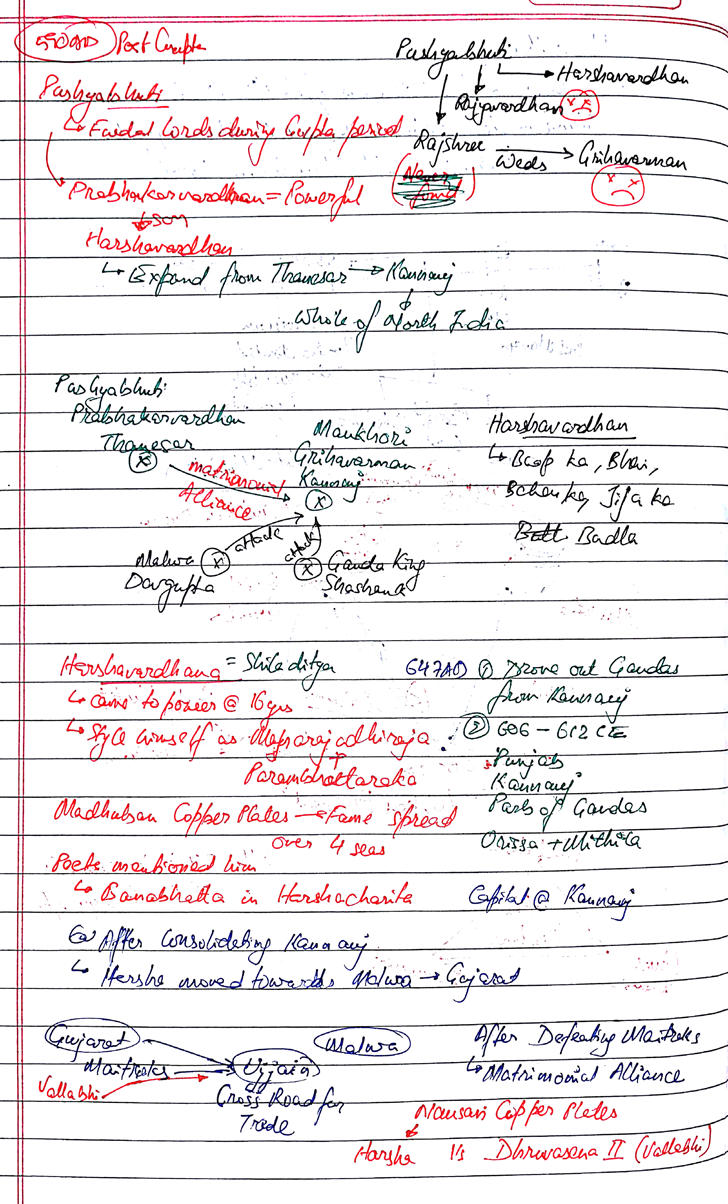 550AD Post Gupta
Pushyabhuti
↳ Feudal Lords during Gupta period
Prabhakarvardhan = Powerful
↓ son
Harshavardhan
↳ Expand from Thanesar → Kannauj
↓
Whole of North India
Pushyabhuti
→ Harshavardhan
Rajyavardhan
Rajshree Weds → Grihavarman
(Never found)
Pushyabhuti
Prabhakarvardhan
Thanesar
matrimonial
Alliance
Maukhori
Grihavarman
Kannauj
Malwa
Devgupta
attack
attack
Gauda King
Shashank
Harshavardhan
↳ Baap ka, Bhai,
Behan ka, Jija ka
Badla
Harshavardhana = Shiladitya
↳ Came to power @ 16 yrs
↳ Style himself as Maharajadhiraja
+
Parambhattaraka
Madhuban Copper Plates → Fame spread
over 4 seas
Poets mentioned him
↳ Banabhatta in Harshacharita
647AD ① Drove out Gaudas
from Kannauj
② 606 - 612 CE
Punjab
Kannauj
Parts of Gaudas
Orissa + Mithila
Capital @ Kannauj
After Consolidating Kannauj
↳ Harsha moved towards Malwa → Gujarat
Gujarat
Maitraks
Vallabhi
Ujjain
Cross Road for
Trade
Malwa
After Defeating Maitraks
↳ Matrimonial Alliance
Nausari Copper Plates
↓
Harsha Vs Dhruvasena II (Vallabhi)